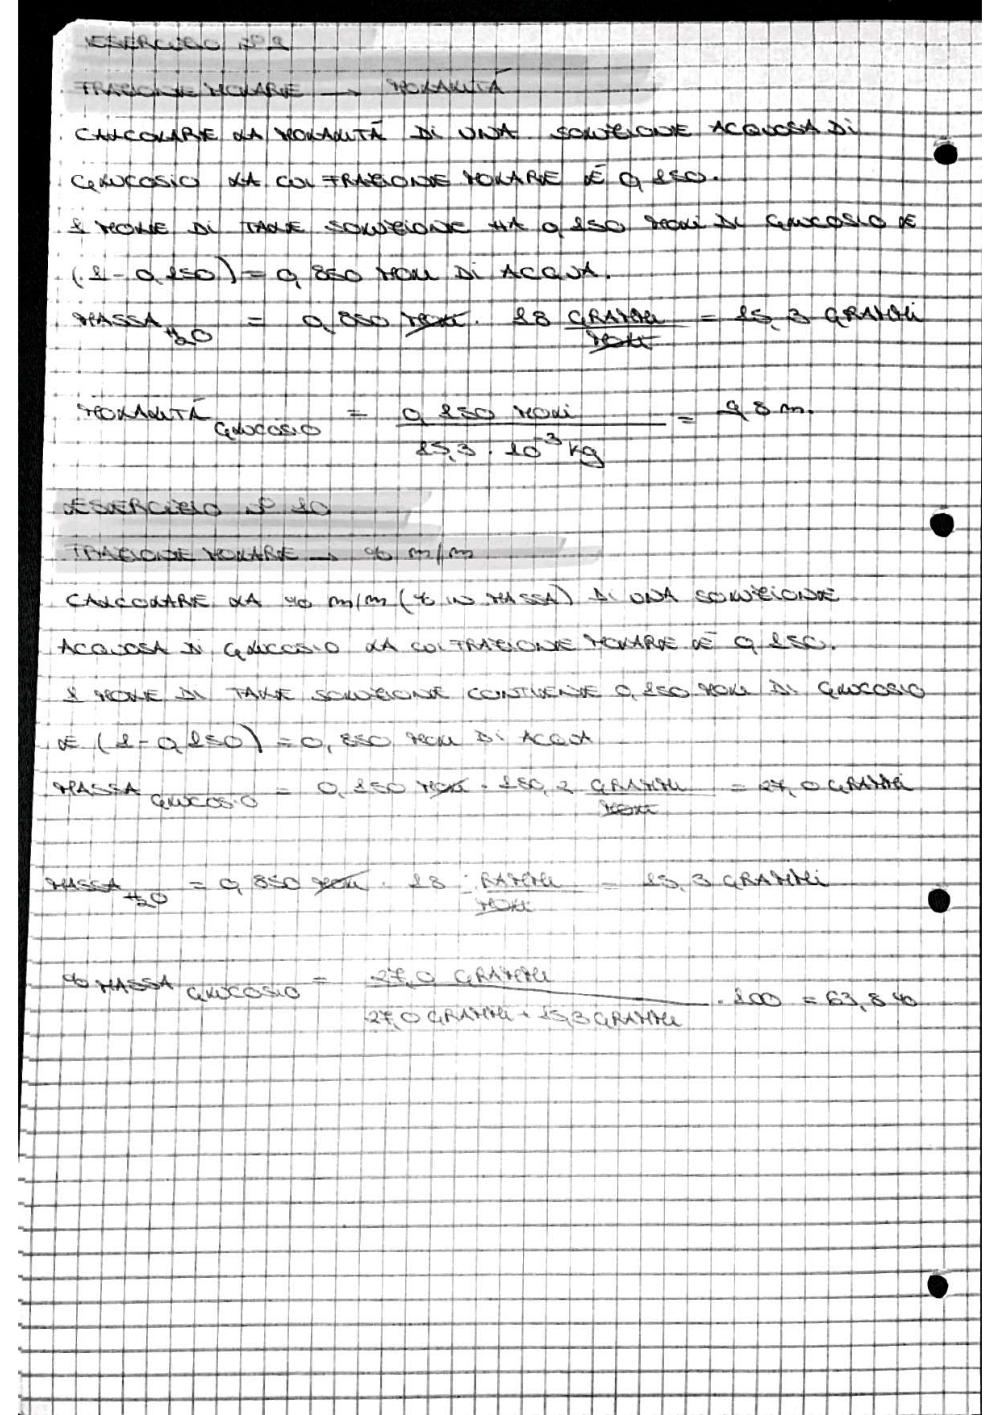 ESERCIZIO N° 9
FRAZIONE MOLARE → MOLALITÁ
CALCOLARE LA MOLALITÁ DI UNA SOLUZIONE ACQUOSA DI
GLUCOSIO LA CUI FRAZIONE MOLARE É 0,150.
1 MOLE DI TALE SOLUZIONE HA 0,150 MOLI DI GLUCOSIO E
(1 - 0,150) = 0,850 MOLI DI ACQUA.
MASSA H2O = 0,850 MOLI · 18 GRAMMI/MOLI = 15,3 GRAMMI
MOLALITÁ GLUCOSIO = 0,150 MOLI / 15,3 · 10^-3 Kg = 9,8 m.
ESERCIZIO N° 10
FRAZIONE MOLARE → % m/m
CALCOLARE LA % m/m (% IN MASSA) DI UNA SOLUZIONE
ACQUOSA DI GLUCOSIO LA CUI FRAZIONE MOLARE É 0,150.
1 MOLE DI TALE SOLUZIONE CONTIENE 0,150 MOLI DI GLUCOSIO
E (1 - 0,150) = 0,850 MOLI DI ACQUA
MASSA GLUCOSIO = 0,150 MOLI · 180,2 GRAMMI/MOLI = 27,0 GRAMMI
MASSA H2O = 0,850 MOLI · 18 GRAMMI/MOLI = 15,3 GRAMMI
% MASSA GLUCOSIO = 27,0 GRAMMI / 27,0 GRAMMI + 15,3 GRAMMI · 100 = 63,8 %